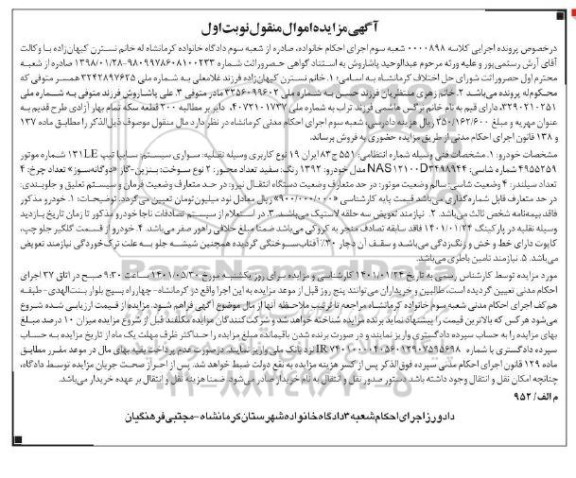 آگهی مزایده اموال منقول نوبت اول
درخصوص پرونده اجرایی کلاسه ۰۰۰۰۸۹۸ شعبه سوم اجرای احکام خانواده، صادره از شعبه سوم دادگاه خانواده کرمانشاه له خانم نسترن کیهان‌زاده با وکالت
آقای آرش رستمی‌پور و علیه ورثه مرحوم عبدالوحید پاشاروش به استناد گواهی حصروراثت شماره ۹۸۰۹۹۷۸۶۰۸۱۰۰۲۳۳-۱۳۹۸/۰۱/۲۸ صادره از شعبه
محترم اول حصروراثت شورای حل اختلاف کرمانشاه به اسامی: ۱. خانم نسترن کیهان‌زاده فرزند غلامعلی به شماره ملی ۳۲۴۲۸۹۷۶۲۵ همسر متوفی که
محکوم‌له پرونده می‌باشد ۲. خانم زهری منظریان فرزند حسین به شماره ملی ۳۲۵۶۰۹۹۶۰۲ مادر متوفی ۳. علی پاشاروش فرزند متوفی به شماره ملی
۳۳۲۹۰۲۱۰۲۵۱ دارای قیم به نام خانم نرگس هاشمی فرزند تراب به شماره ملی ۴۰۷۳۱۰۱۷۳۷، دایر بر مطالبه ۲۰۰ قطعه سکه تمام بهار آزادی طرح قدیم به
عنوان مهریه و مبلغ ۳۵۰/۱۶۲/۶۰۰ ریال هزینه دادرسی، شعبه سوم اجرای احکام مدنی کرمانشاه در نظر دارد مال منقول موصوف ذیل‌الذکر را مطابق ماده ۱۳۷
و ۱۳۸ قانون اجرای احکام مدنی از طریق مزایده حضوری به فروش برساند.
مشخصات خودرو: ۱. مشخصات فنی وسیله شماره انتظامی: ۵۵۱ ج ۸۳ ایران ۱۹ نوع کاربری وسیله نقلیه: سواری سیستم: سایپا تیپ ۱۳۱LE شماره موتور
۴۹۵۵۲۵۹ شماره شاسی: NAS۱۲۱۰۰D۳۴۹۸۹۲۴ مدل خودرو: ۱۳۹۲ رنگ: سفید تعداد محور: ۲ نوع سوخت: بنزین-گاز «دوگانه‌سوز» تعداد چرخ: ۴
تعداد سیلندر: ۴ وضعیت شاسی: سالم وضعیت موتور: در حد متعارف وضعیت دستگاه انتقال نیرو: در حد متعارف وضعیت فرمان و سیستم تعلیق و جلوبندی:
در حد متعارف قابل شماره‌گذاری می‌باشد قیمت پایه کارشناسی «۹۰۰/۰۰۰/۰۰۰» ریال معادل نود میلیون تومان تعیین می‌گردد. توضیحات: ۱. خودرو مذکور
فاقد بیمه‌نامه شخص ثالث می‌باشد. ۲. نیازمند تعویض سه حلقه لاستیک می‌باشد. ۳. در استعلام از سیستم تصادفات ناجا خودرو مذکور تا زمان تاریخ بازدید
وسیله نقلیه در پارکینگ ۱۴۰۱/۰۱/۲۴ فاقد سابقه تصادف منجر به کروکی می‌باشد ضمنا مبلغ خلافی راهور صفر می‌باشد. ۴. خودرو از قسمت گلگیر جلو چپ،
کاپوت دارای خط و خش و رنگ‌زدگی می‌باشد و سقف آن دچار ۳۰٪ آفتاب‌سوختگی گردیده همچنین شیشه جلو به علت ترک‌خوردگی نیازمند تعویض
می‌باشد. ۵. نیازمند تامین باطری می‌باشد.
مورد مزایده توسط کارشناس رسمی به تاریخ ۱۴۰۱/۰۱/۲۴ کارشناسی و مزایده برای روز یکشنبه مورخ ۱۴۰۱/۰۵/۳۰ ساعت ۹:۳۰ صبح در اتاق ۲۷ اجرای
احکام مدنی تعیین گردیده است، طالبین و خریداران می‌توانند پنج روز قبل از موعد مزایده به این اجرا واقع در کرمانشاه-چهارراه بسیج بلوار بنت‌الهدی-طبقه
هم‌کف اجرای احکام مدنی شعبه سوم خانواده کرمانشاه مراجعه تا ترتیب ملاحظه آنها از مال موضوع آگهی فراهم شود. مزایده از قیمت ارزیابی شده شروع
می‌شود هر کس که بالاترین قیمت را پیشنهاد نماید برنده مزایده شناخته خواهد شد و شرکت‌کنندگان مزایده مکلفند قبل از شروع مزایده میزان ۱۰ درصد مبلغ
بهای مزایده را به حساب سپرده دادگستری واریز نمایند و در صورت برنده شدن باقیمانده مبلغ مزایده را حداکثر ظرف مهلت یک ماه از تاریخ مزایده به حساب
سپرده دادگستری با شماره نزد بانک ملی واریز نمایند. در صورت عدم پرداخت بقیه بهای مال در موعد مقرر مطابق
ماده ۱۲۹ قانون اجرای احکام مدنی سپرده فوق‌الذکر پس از کسر هزینه مزایده به نفع دولت ضبط خواهد شد. پس از احراز صحت جریان مزایده توسط دادگاه،
چنانچه امکان نقل و انتقال وجود داشته باشد دستور صدور نقل و انتقال به نام خریدار صادر می‌شود ضمنا هزینه نقل و انتقال بر عهده خریدار می‌باشد.
م الف/ ۹۵۲
دادورز اجرای احکام شعبه ۳ دادگاه خانواده شهرستان کرمانشاه-مجتبی فرهنگیان